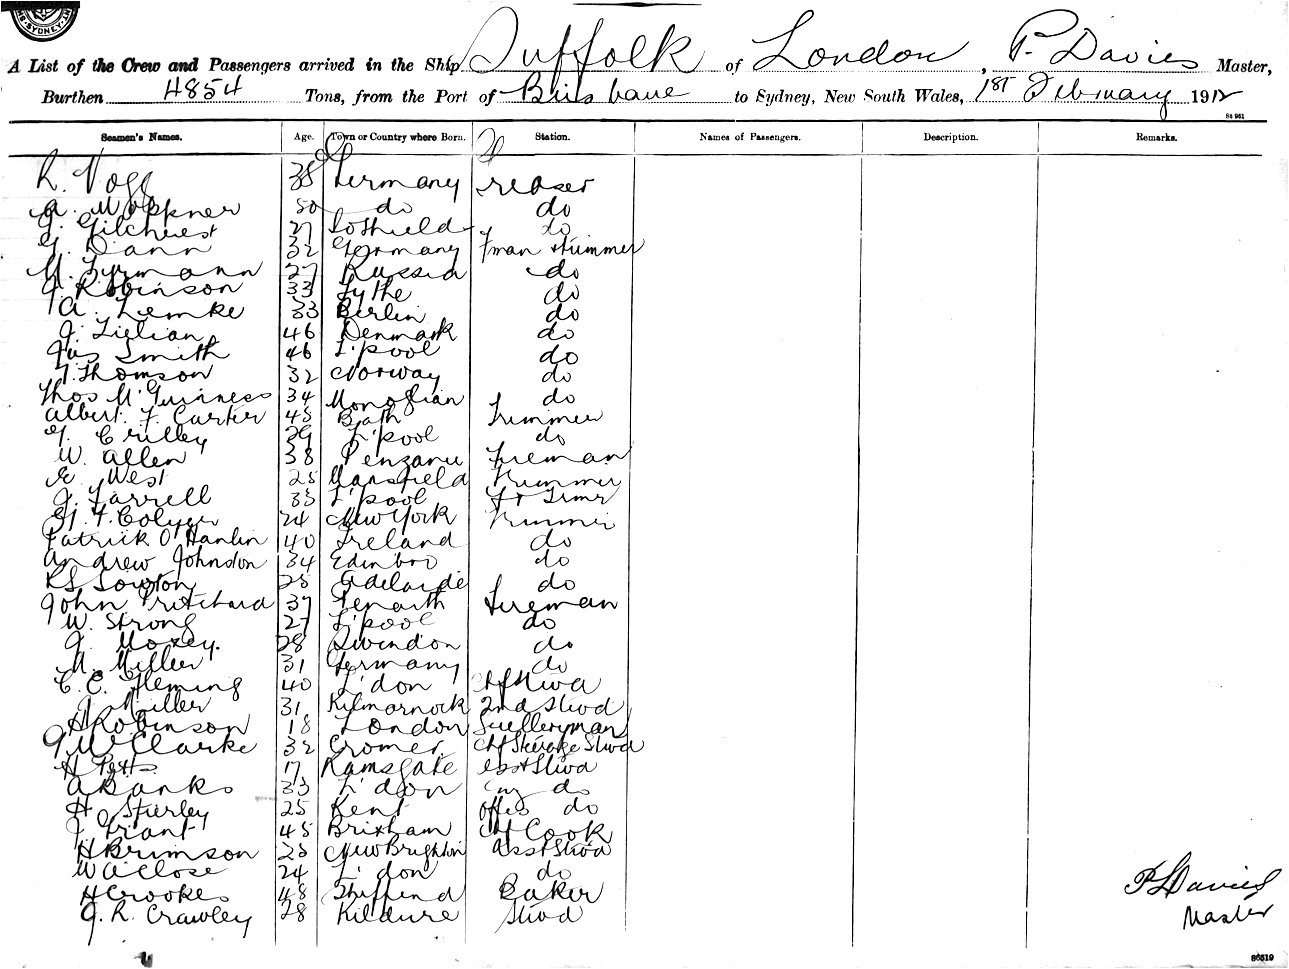 SYDNEY
A List of the Crew and Passengers arrived in the Ship Suffolk of London, P. Davies Master,
Burthen 4854 Tons, from the Port of Brisbane to Sydney, New South Wales, 1st February 1912
St 961
Seamen's Names. Age. Town or Country where Born. Station. Names of Passengers. Description. Remarks.
R. Vogg 38 Germany Greaser
A. 50 do do
J. Gilchrist 27 So Shields do
G. Dann 32 Germany Fman & trimmer
M. 27 Russia do
J. Robinson 33 do
A. Lemke 33 Berlin do
J. 46 Denmark do
Jas Smith 46 L'pool do
T. Thomson 32 Norway do
Thos McGuinness 34 do
Albert F. Carter 45 Bath Trimmer
G. Crilley 29 L'pool do
W. Allen 38 Penzance Fireman
E. West 25 Mansfield Trimmer
J. Farrell 35 L'pool
24 New York Trimmer
Patrick O'Hanlin 40 Ireland do
Andrew Johnston 34 Edinbro do
25 Adelaide do
John Pritchard 37 Penarth Fireman
W. Strong 27 L'pool do
J. Moxey. 28 Swindon do
M. Miller 31 Germany do
C. C. Fleming 40 L'don Chf Stwd
J. Miller 31 Kilmarnock 2nd Stwd
H Robinson 18 London Sculleryman
G McClarke 32 Cromer Chf Steerage Stwd
H Potts 17 Ramsgate asst Stwd
A Banks 33 L'don do
H 25 Kent offrs do
J. Grant 45 Brixham Chf Cook
H Brimson 25 New Brighton Asst Stwd
W A Close 24 L'don do
H Crookes 48 Sheffield Baker
J. R. Crawley 28 Kildare Stwd
P Davies
Master
86519